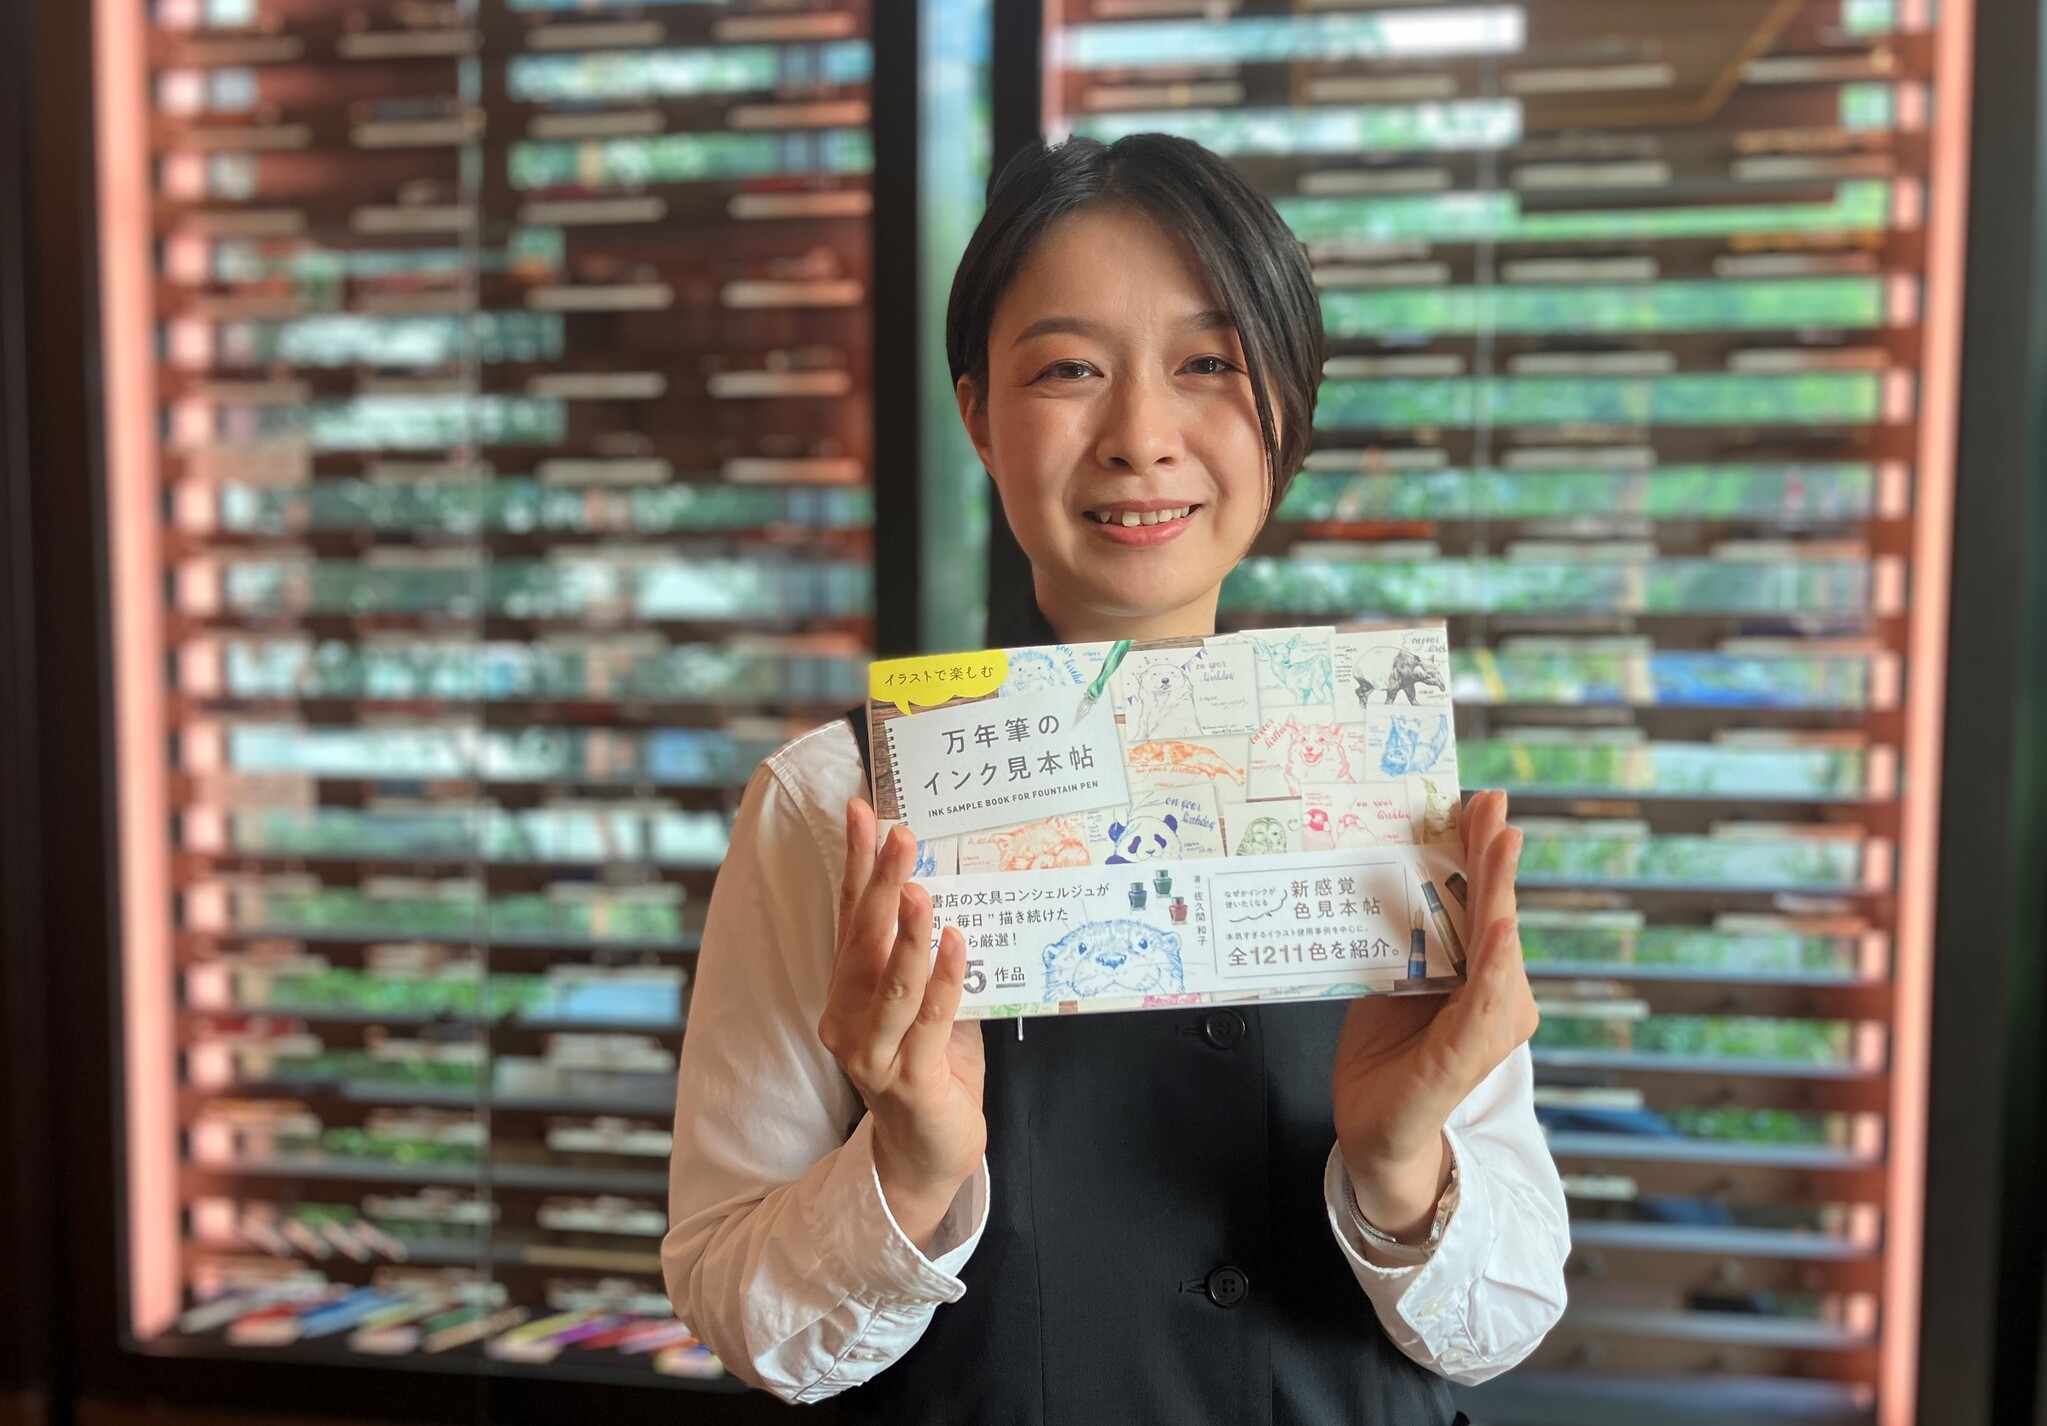 イラストで楽しむ
万年筆の
インク見本帖
INK SAMPLE BOOK FOR FOUNTAIN PEN
on your
birthday
on your
birthday
書店の文具コンシェルジュが
間“毎日”描き続けた
ら厳選！
5作品
著：佐久間和子
なぜかインクが
使いたくなる
新感覚
色見本帖
本気すぎるイラスト使用事例を中心に、
全1211色を紹介。